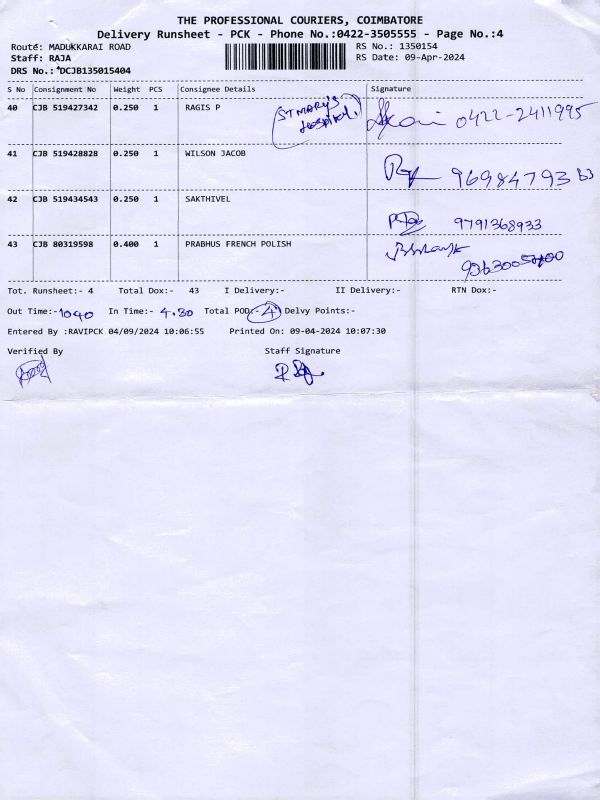 THE PROFESSIONAL COURIERS, COIMBATORE
Delivery Runsheet - PCK - Phone No.:0422-3505555 - Page No.:4
Route: MADUKKARAI ROAD RS No.: 1350154
Staff: RAJA RS Date: 09-Apr-2024
DRS No.:*DCJB135015404
S No Consignment No Weight PCS Consignee Details Signature
40 CJB 519427342 0.250 1 RAGIS P ST MARY'S 0422-2411995
Hospital.
41 CJB 519428828 0.250 1 WILSON JACOB
9698479363
42 CJB 519434543 0.250 1 SAKTHIVEL
9791368933
43 CJB 80319598 0.400 1 PRABHUS FRENCH POLISH
Tot. Runsheet:- 4 Total Dox:- 43 I Delivery:- II Delivery:- RTN Dox:-
Out Time:- 1040 In Time:- 4.30 Total POD:- 4 Delvy Points:-
Entered By :RAVIPCK 04/09/2024 10:06:55 Printed On: 09-04-2024 10:07:30
Verified By Staff Signature